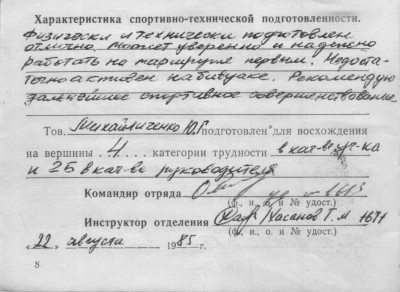 Характеристика спортивно-технической подготовленности.
Физически и технически подготовлен
отлично. Может уверенно и надежно
работать на маршруте первым. Недоста-
точно активен на бивуаке. Рекомендую
дальнейшее спортивное совершенствование
Тов. Михайличенко Ю.Г подготовлен для восхождения
на вершины 4 категории трудности в кач-ве уч-ка
и 2Б в кач-ве руководителя
Командир отряда
(ф., и., о. и № удост.)
Инструктор отделения Хасанов Т.М
(ф., и., о. и № удост.)
„22" августа 1985 г.
8